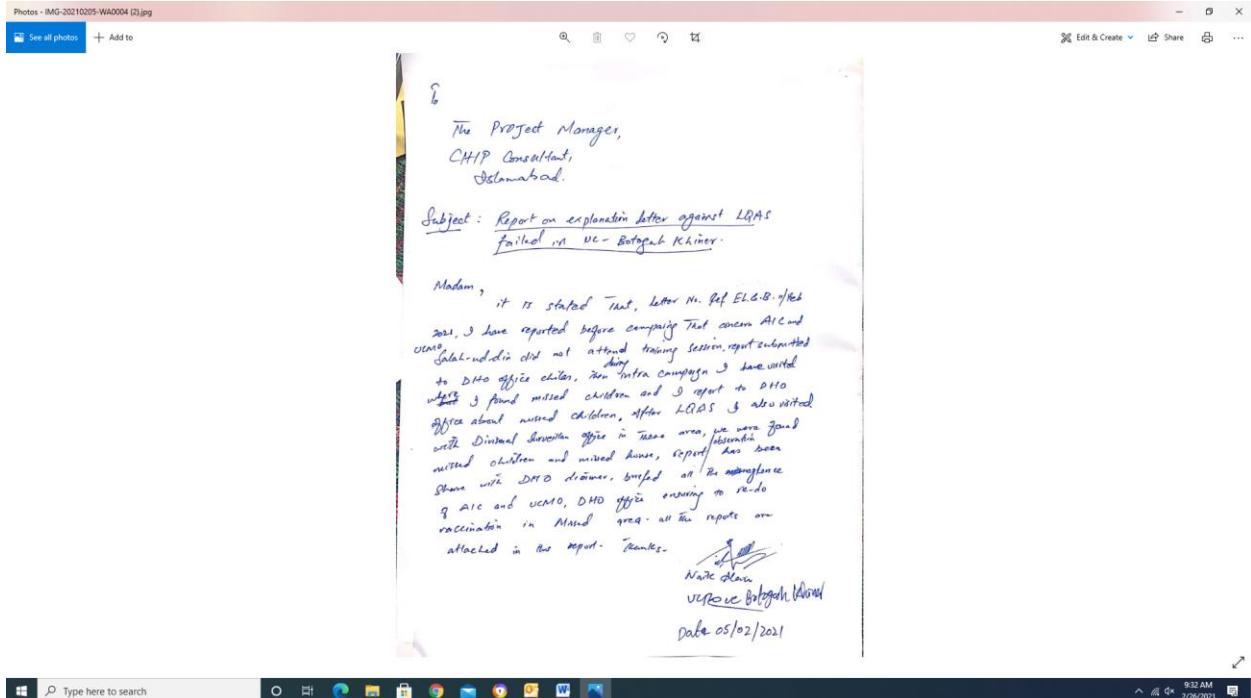 Photos - IMG-20210205-WA0004 (2).jpg
See all photos
Add to
Edit & Create
Share
To
The Project Manager,
CHIP Consultant,
Islamabad.
Subject : Report on explanation letter against LQAS
failed in UC - Botogah Khiner.
Madam,
it is stated That, letter No. Ref EL.G.B. 
2021, I have reported before campaing That concern AIC and
UCMO Salah-ud-din did not attend training session, report submitted
to DHO office chilas, Then during intra campaign I have visited
where I found missed children and I report to DHO
office about missed children, After LQAS I also visited
with Divisional office in These area, we were found
missed children and missed house, report/observation has been
Share with DHO briefed all The
of AIC and UCMO, DHO office ensuring to re-do
vaccination in Missed area. all The repots are
attached in this report. Thanks.
Botogah
Date 05/02/2021
Type here to search
9:32 AM
2/26/2021